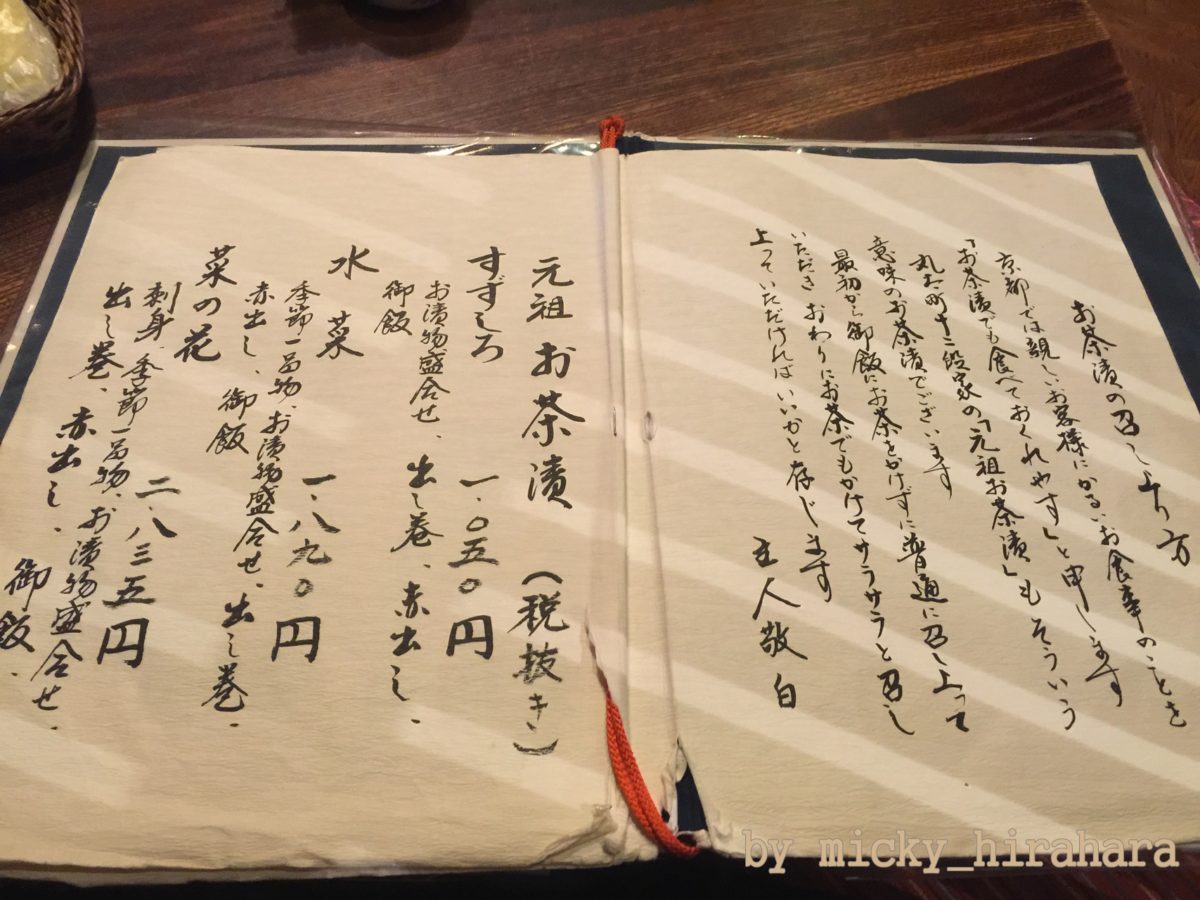 お茶漬の召し上り方
京都では親しいお客様にかるいお食事のことを
「お茶漬でも食べておくれやす」と申します
丸太町十二段家の「元祖お茶漬」もそういう
意味のお茶漬でございます
最初から御飯にお茶をかけずに普通に召し上って
いただき おわりにお茶でもかけてサラサラと召し
上っていただければいいかと存じます
主人敬白
元祖お茶漬 (税抜き)
すずしろ 一、〇五〇円
お漬物盛合せ、出し巻、赤出し、
御飯
水菜 一、八九〇円
季節一品物、お漬物盛合せ、出し巻、
赤出し、御飯
菜の花 二、八三五円
刺身、季節一品物、お漬物盛合せ、
出し巻、赤出し、御飯、
by micky_hirahara